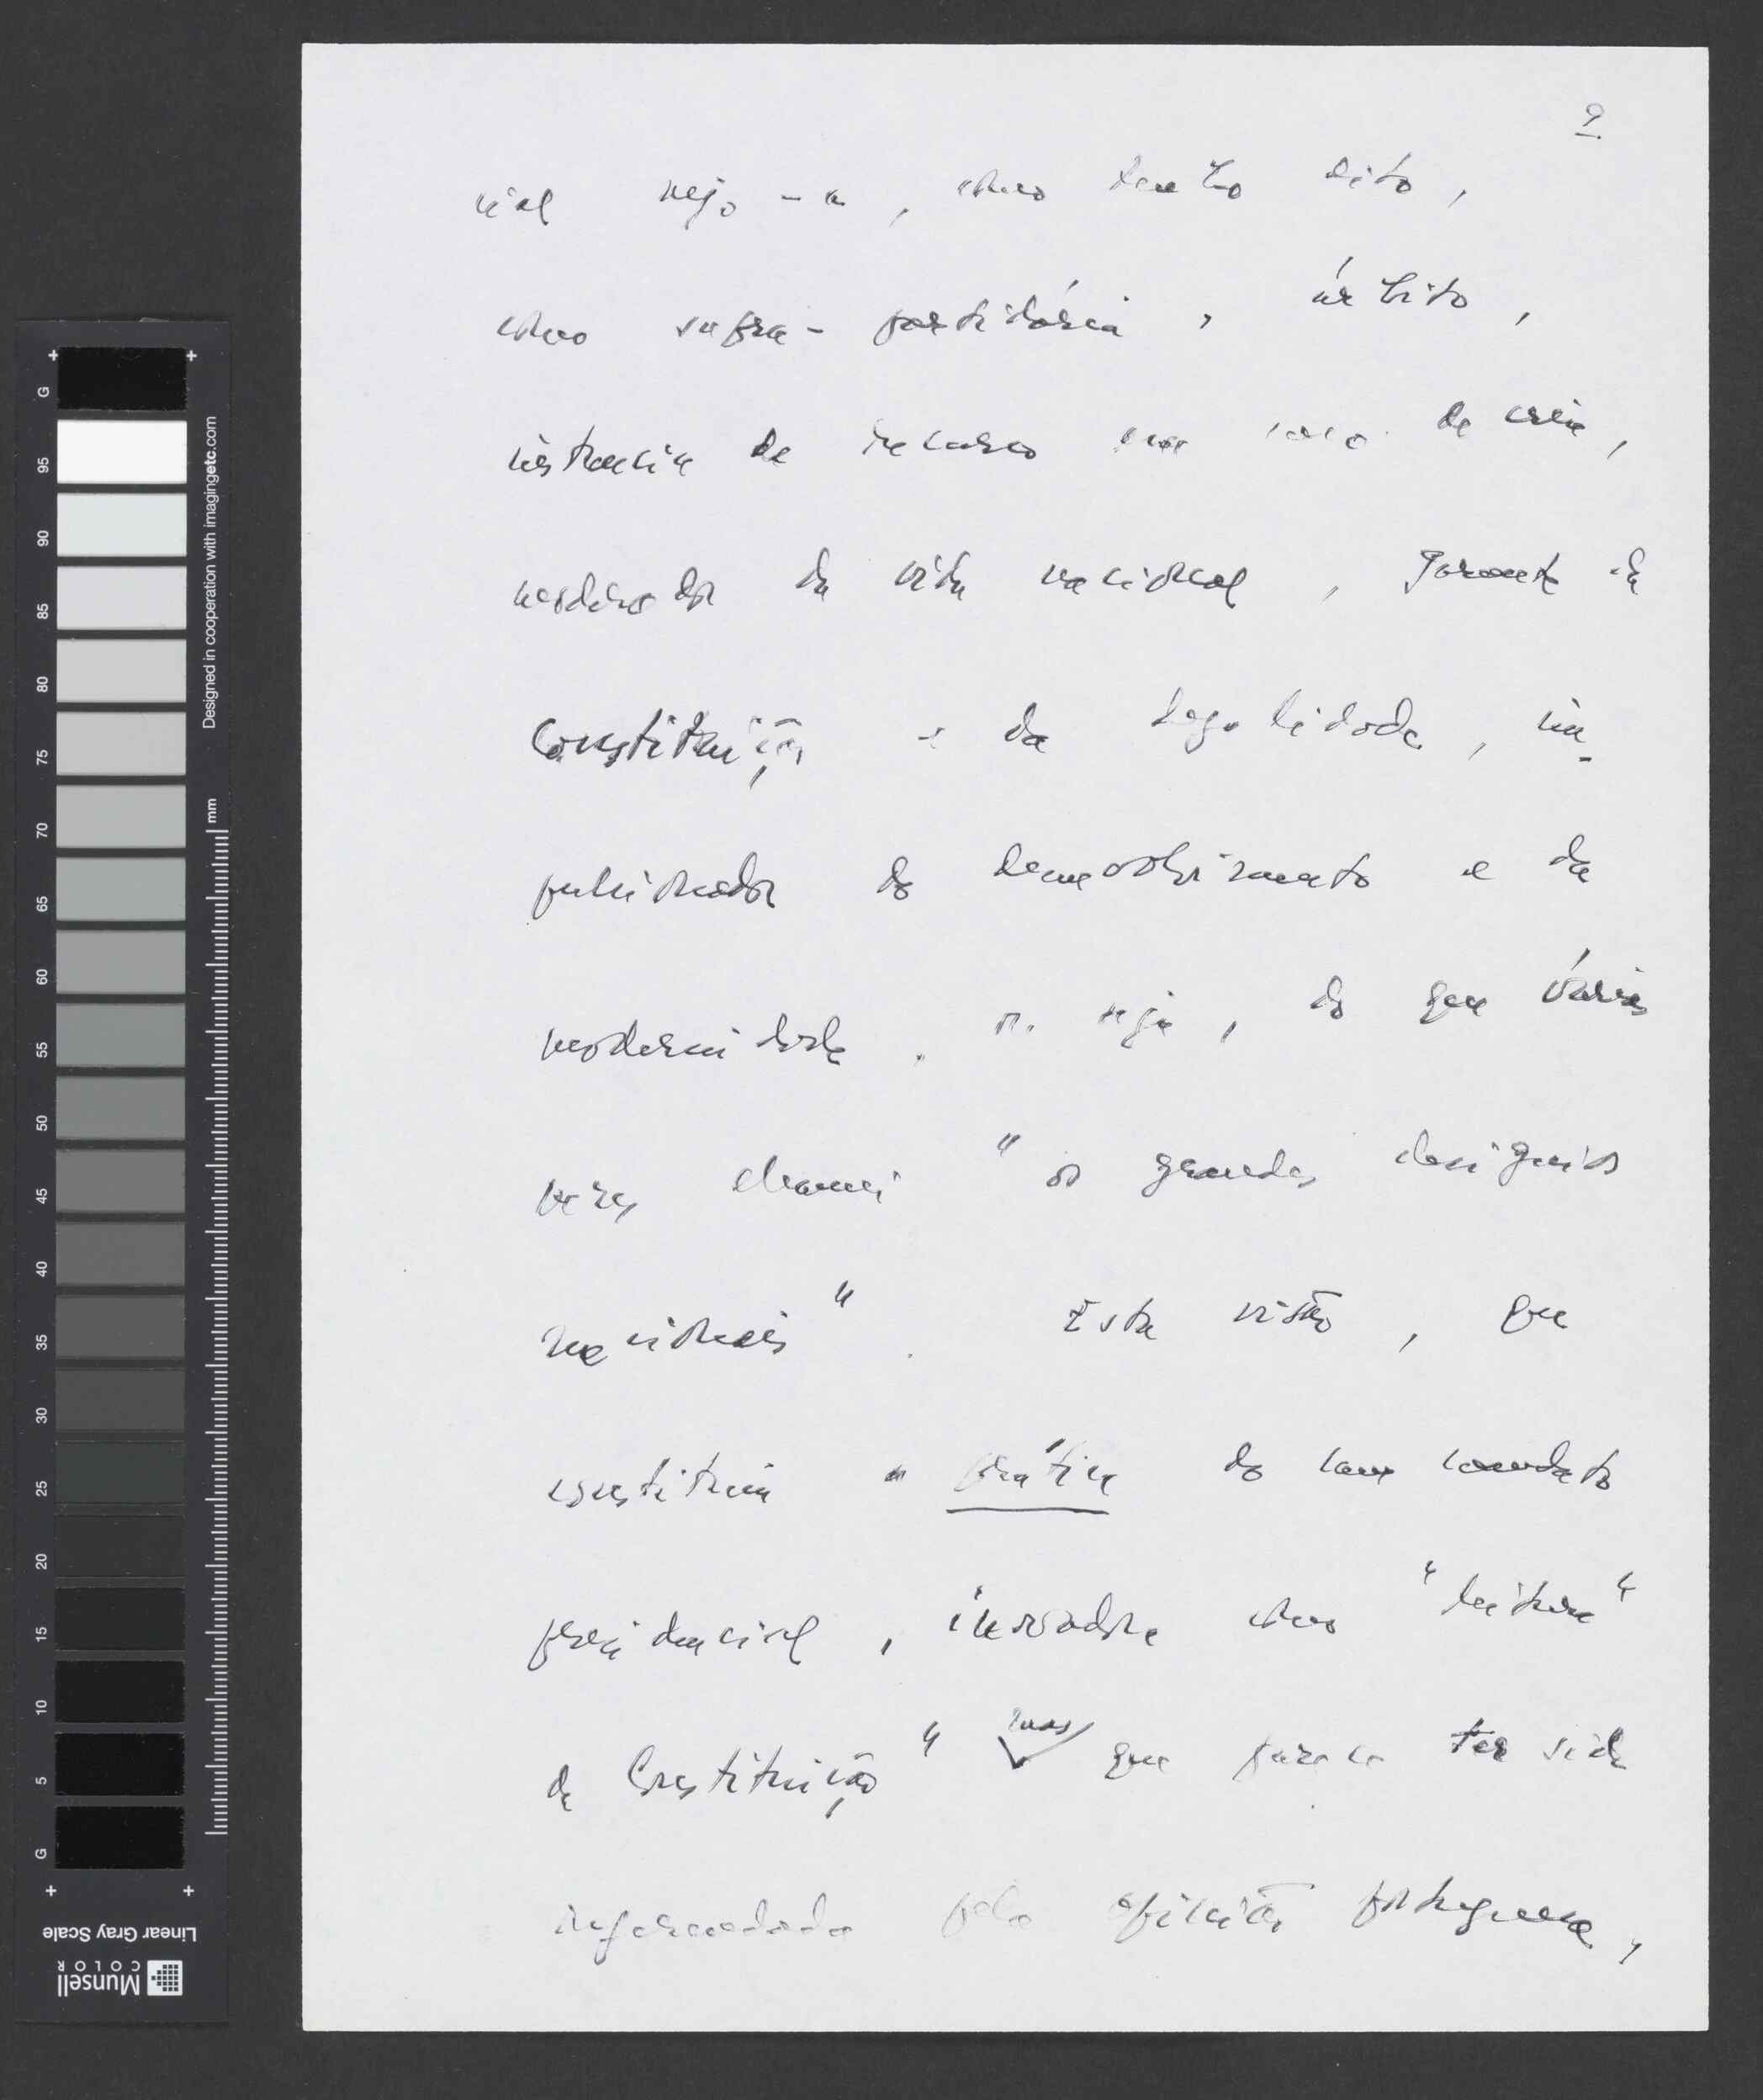 9
cial vejo-a, como tenho dito,
como supra-partidária, árbitro,
instância de recurso em caso de crise,
moderador da vida nacional, garante da
Constituição e da legalidade, im-
pulsionador do desenvolvimento e da
modernidade, ou seja, do que várias
vezes chamei "os grandes desígnios
nacionais". Esta visão, que
constituiu a prática do meu mandato
presidencial, inovadora como "leitura"
da Constituição" mas que parece ter sido
pela opinião portuguesa,
G
95
90
85
80
75
70
65
60
55
50
45
40
35
30
25
20
15
10
5
G
Designed in cooperation with imagingetc.com
mm
Linear Gray Scale
Munsell
COLOR